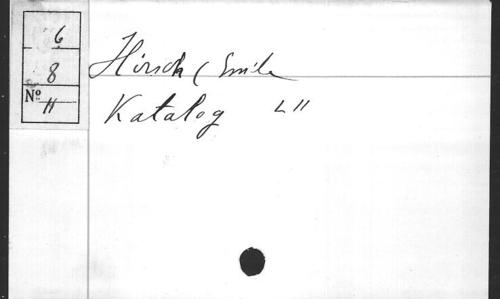 6
8
No 11
Hirsch (Emile
Katalog LII